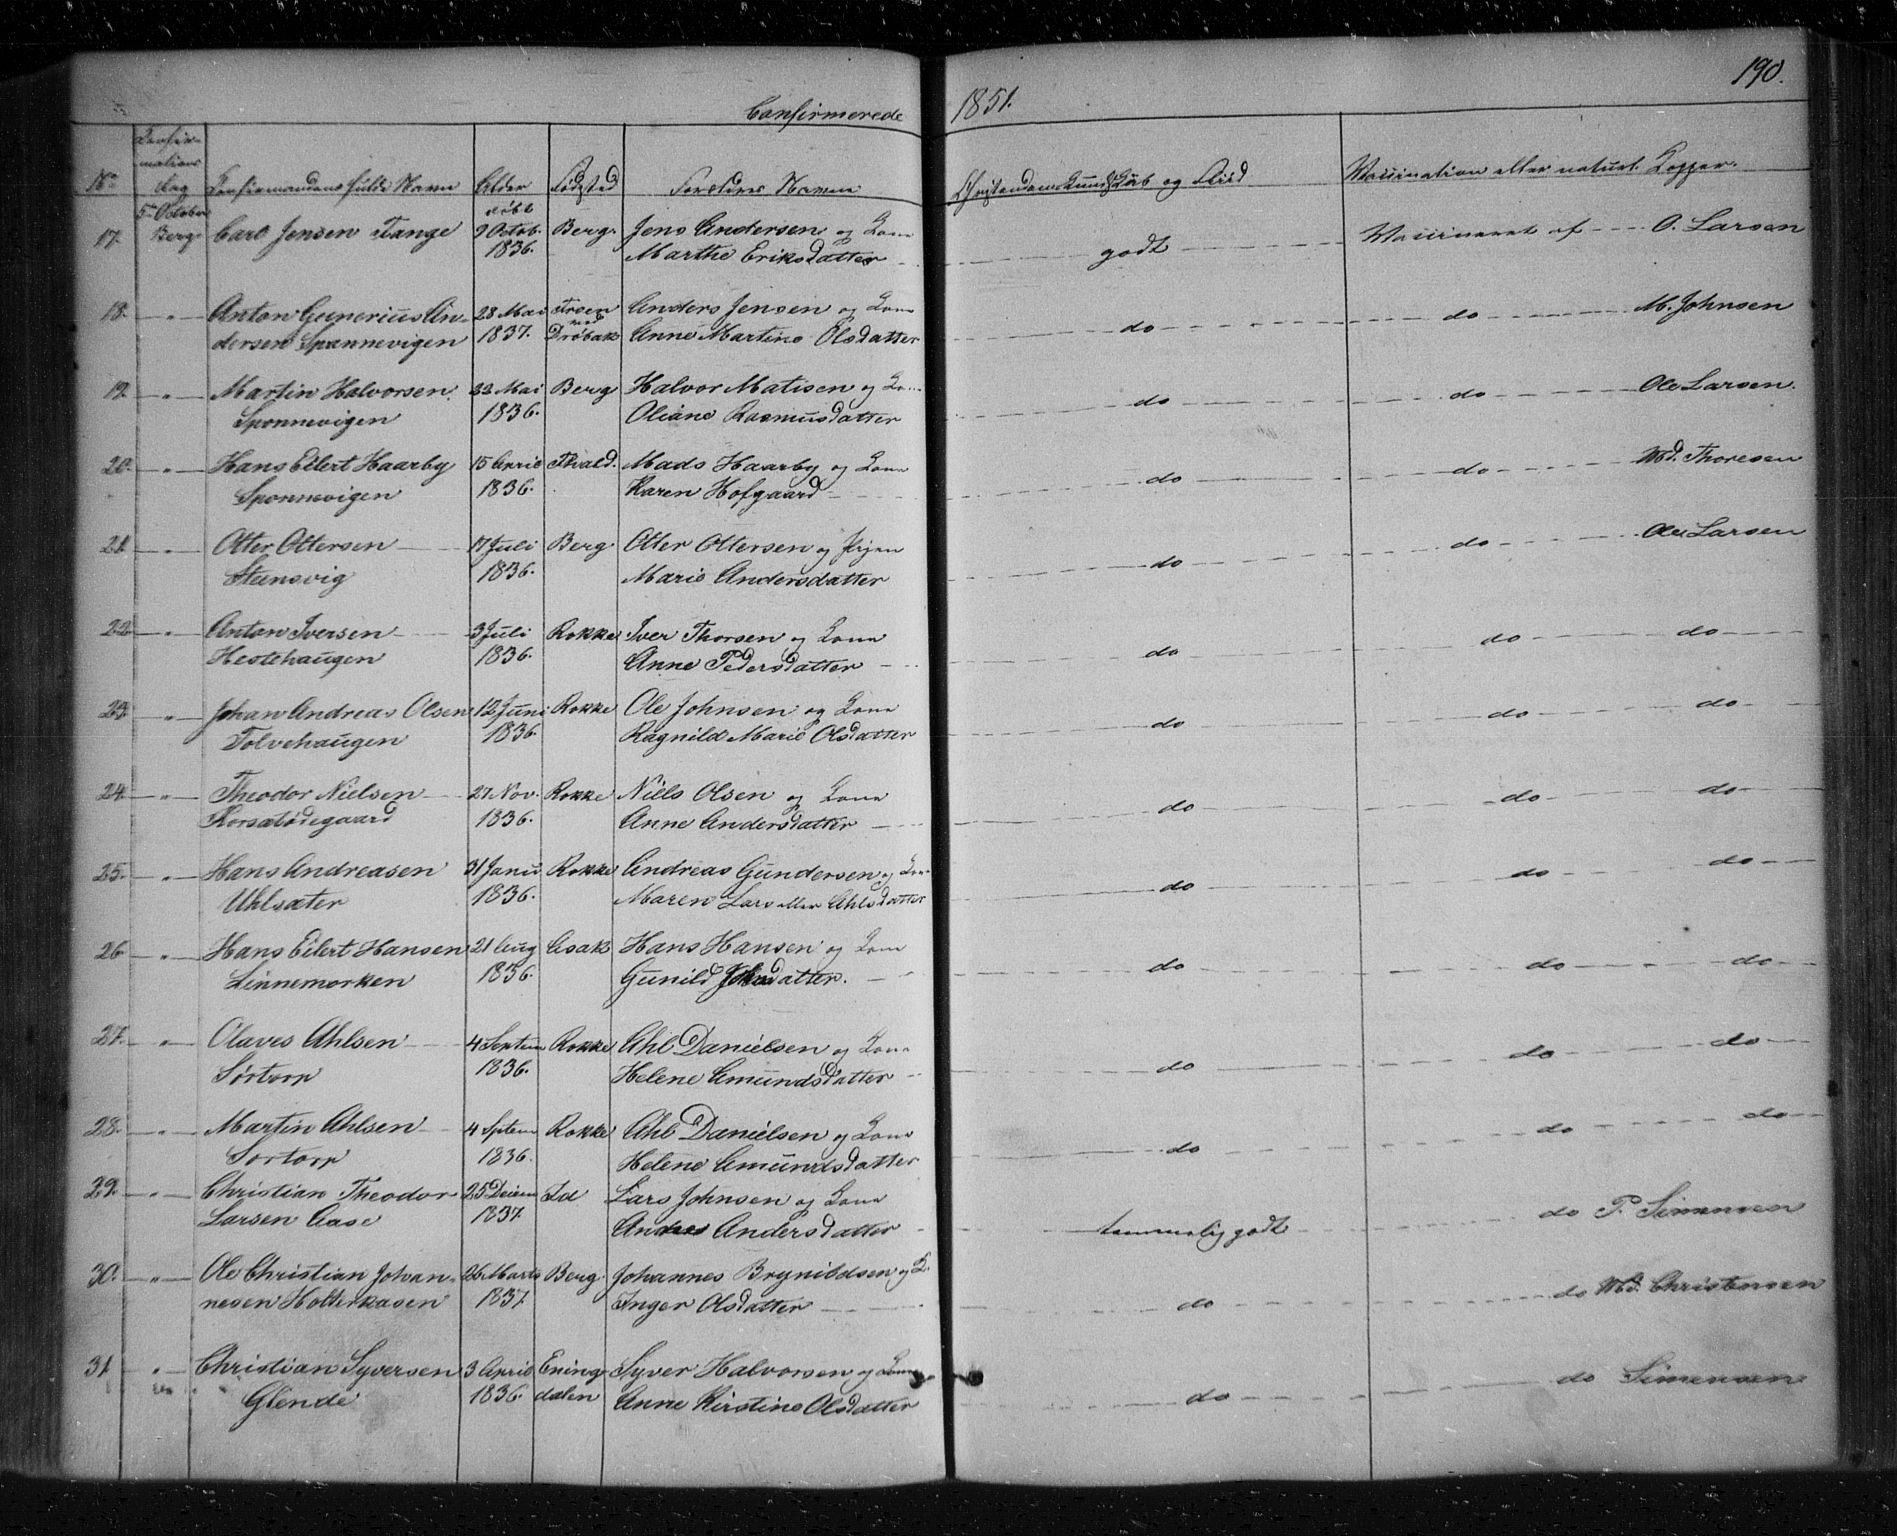 190.
Confirmerede 1851.
No Confirmations Dag Confirmandens fulde Navn Alder Fødested Forældres Navne Christendoms Kundskab og Flid Vaccination eller naturl. Kopper.
5te October døbt
17. Berg. Carl Jensen Tange 9 Octob. Berg. Jens Andersen og Kone godt Vaccineret af O. Larsen
1836. Marthe Eriksdatter
18. " Anton Gunerius An- 28 Mai Anders Jensen og Kone do do M. Johnsen
dersen Sponnevigen 1837. Drøbak Anne Martine Olsdatter
19. " Martin Halvorsen 22 Mai Berg Halvor Matisen og Kone do do Ole Larsen.
Sponnevigen 1836. Oliane Rasmusdatter
20. " Hans Eilert Haarby 15 April Thald. Mads Haarby og Kone do do Md. Thoresen
Sponnevigen 1836. Karen Hofgaard
21. " Otter Ottersen 17 Juli Berg Otter Ottersen og Pigen do do Ole Larsen
Steensvig 1836. Marie Andersdatter
22. " Anton Iversen 3 Juli Rokke Iver Thorsen og Kone do do do
Hestehaugen 1836. Anne Pedersdatter
23. " Johan Andreas Olsen 12 Juni Rokke Ole Johnsen og Kone do do do
Tolvehaugen 1836. Ragnild Marie Olsdatter
24. " Theodor Nielsen 27. Nov. Rokke Niels Olsen og Kone do do do
Korsetødegaard 1836. Anne Andersdatter
25. " Hans Andreasen 31 Janu Rokke Andreas Gundersen og Kone do do do
Uhlsæter 1836. Maren Lars eller Ahlsdatter
26 " Hans Eilert Hansen 21 Aug Asak Hans Hansen og Kone do do do
Linnemorken 1836. Gunild Johnsdatter.
27. " Olaves Ahlsen 4 Septem Rokke Ahl Danielsen og Kone do do do
Sørtorp 1836. Helene Amundsdatter
28. " Martin Ahlsen 4 Septem Rokke Ahl Danielsen og Kone do do do
Sørtorp 1836. Helene Amundsdatter
29. " Christian Theodor 25 Decem Id Lars Johnsen og Kone temmelig godt do P. Simensen
Larsen Aase 1837. Andersdatter
30. " Ole Christian Johan- 26 Marts Berg. Johannes Brynildsen og K. do do Md. Christensen
nesen Holterkasen 1837. Inger Olsdatter
31 " Christian Syversen 3 April Ening Syver Halvorsen og Kone do do Simensen
Glende 1836. dalen Anne Kirstine Olsdatter